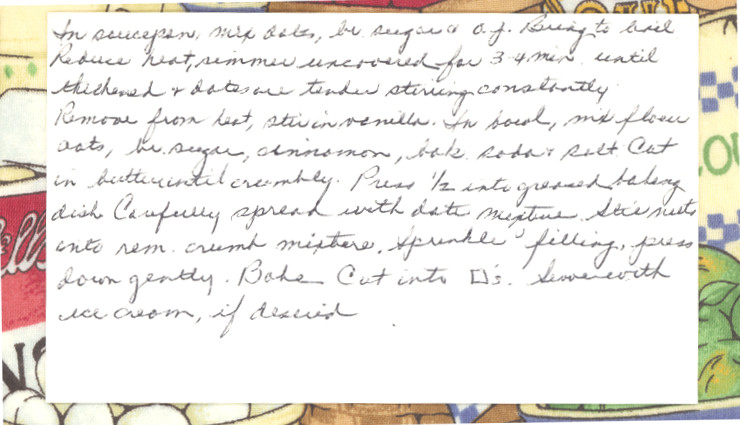 In saucepan, mix dates, br. sugar & o.j. Bring to boil
Reduce heat, simmer uncovered for 3-4 min until
thickened & dates are tender stirring constantly
Remove from heat, stir in vanilla. In bowl, mix flour
oats, br. sugar, cinnamon, bak. soda & salt Cut
in butter until crumbly. Press 1/2 into greased baking
dish Carefully spread with date mixture. Stir nuts
into rem. crumb mixture. Sprinkle filling, press
down gently. Bake Cut into □'s. Serve with
ice cream, if desired